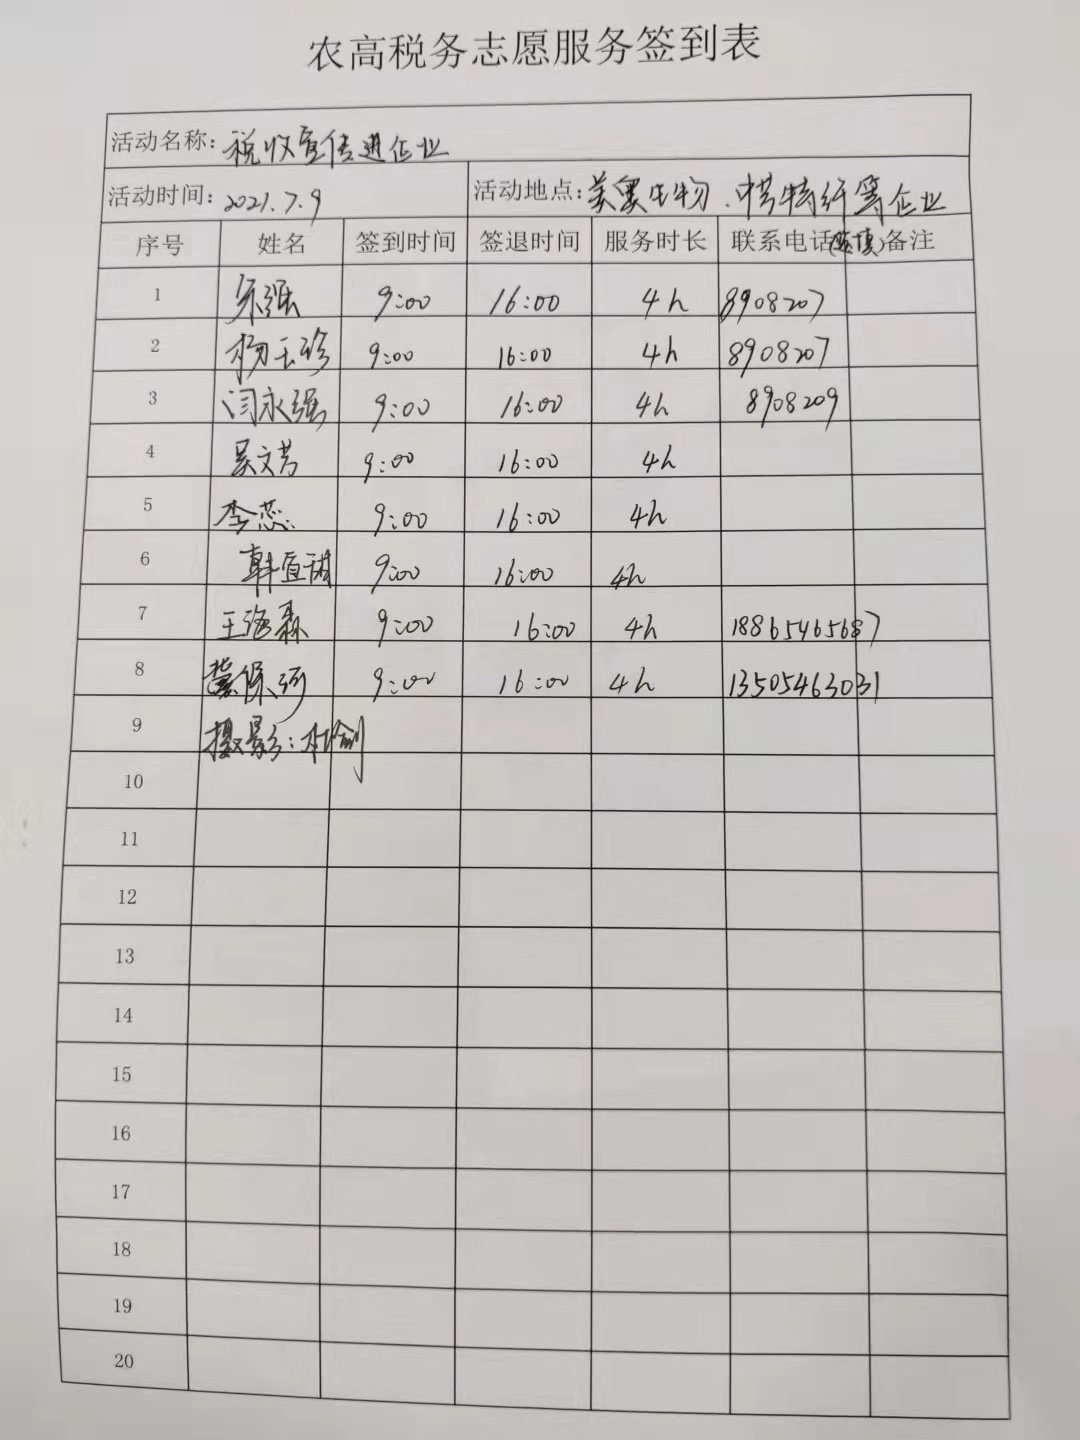 农高税务志愿服务签到表
活动名称: 税收宣传进企业
活动时间: 2021.7.9 活动地点: 美奥生物、中芳特纤等企业
序号 姓名 签到时间 签退时间 服务时长 联系电话(选填) 备注
1 乐强 9:00 16:00 4h 8908207
2 杨玉珍 9:00 16:00 4h 8908207
3 闫永强 9:00 16:00 4h 8908209
4 吴文芳 9:00 16:00 4h
5 李蕊 9:00 16:00 4h
6 韩宜 9:00 16:00 4h
7 王海森 9:00 16:00 4h 18865465687
8 9:00 16:00 4h 13505463031
9 摄影:杜剑
10
11
12
13
14
15
16
17
18
19
20